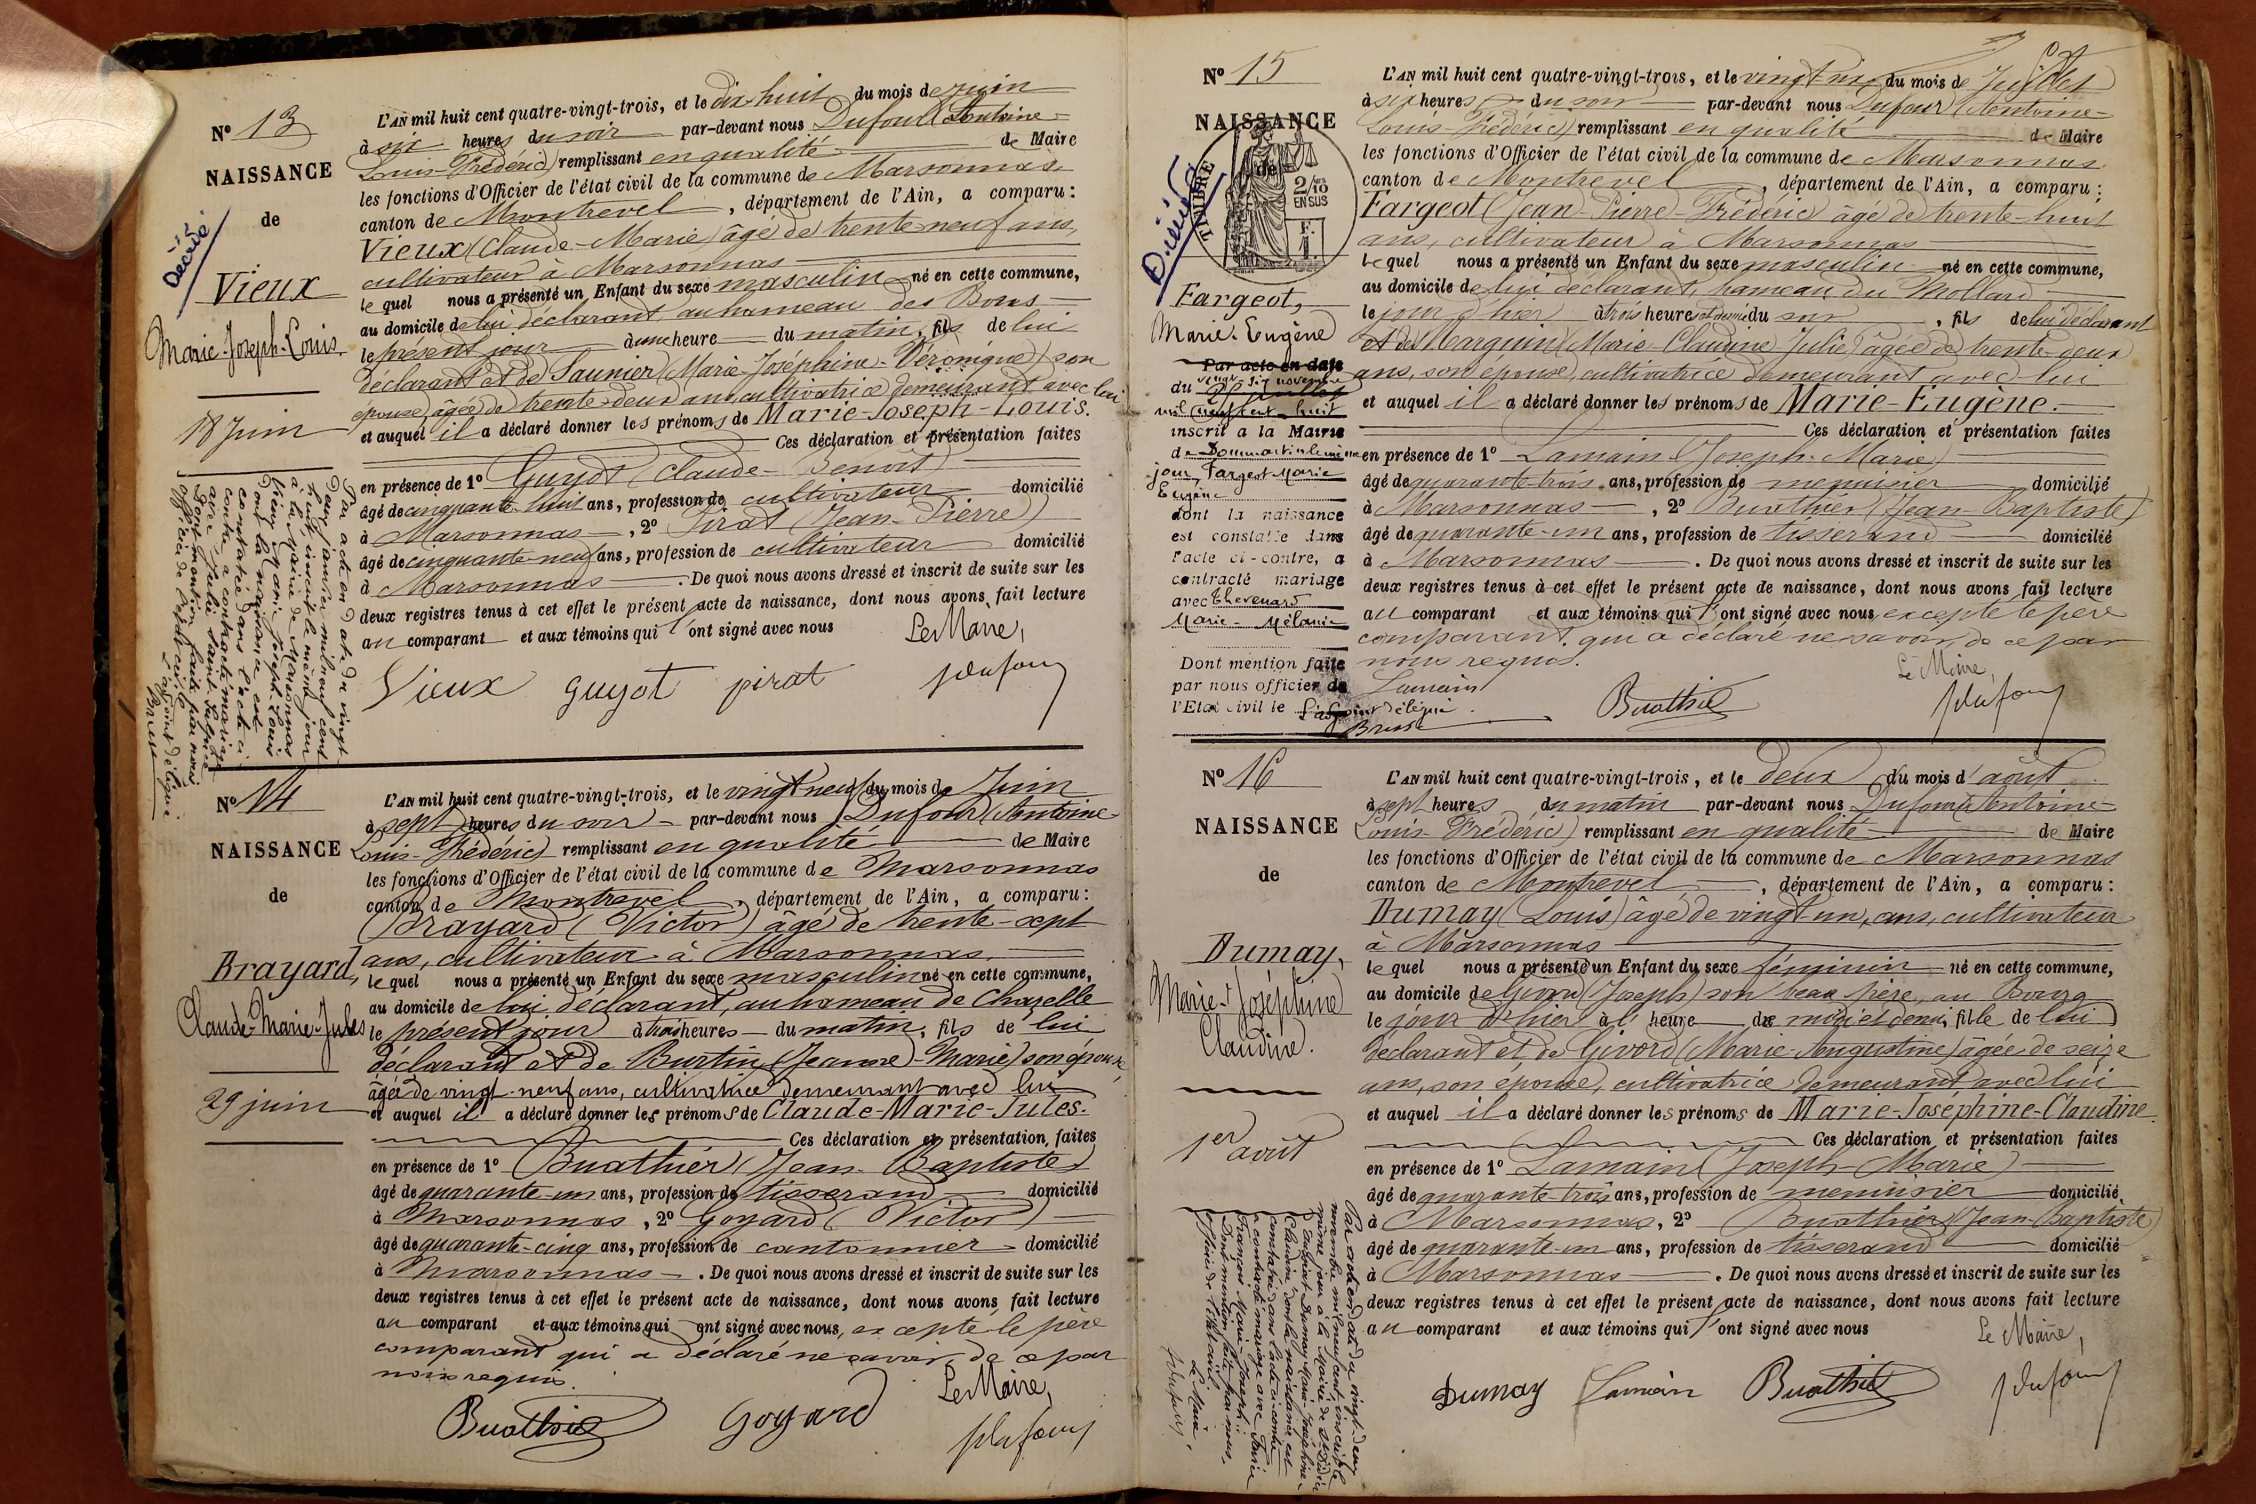 Nº 13
NAISSANCE
de
Décédé
Vieux
Marie-Joseph-Louis.
18 Juin
Par acte en date du vingt
deux janvier mil neuf cent
huit, inscrit le même jour
à la Mairie de Marsonnas
Vieux Marie Joseph Louis
dont la naissance est
constatée dans l'acte ci
contre a contracté mariage
avec Julie
Dont mention faite par nous
officier de l'état civil
L'adjoint délégué
Brest
L'AN mil huit cent quatre-vingt-trois, et le dix-huit du mois de juin
à six heures du soir par-devant nous Dufour (Antoine-
Louis-Frédéric) remplissant en qualité de Maire
les fonctions d'Officier de l'état civil de la commune de Marsonnas
canton de Montrevel, département de l'Ain, a comparu :
Vieux (Claude-Marie) âgé de trente-neuf ans,
cultivateur à Marsonnas
le quel nous a présenté un Enfant du sexe masculin né en cette commune,
au domicile de lui déclarant, au hameau des Bons
le présent jour à une heure du matin, fils de lui
déclarant et de Saunier (Marie-Joséphine-Véronique) son
épouse, âgée de trente-deux ans cultivatrice demeurant avec lui
et auquel il a déclaré donner les prénoms de Marie-Joseph-Louis.
Ces déclaration et présentation faites
en présence de 1º Guyot (Claude-Benoit)
âgé de cinquante-huit ans, profession de cultivateur domicilié
à Marsonnas, 2º Pirat (Jean-Pierre)
âgé de cinquante-neuf ans, profession de cultivateur domicilié
à Marsonnas. De quoi nous avons dressé et inscrit de suite sur les
deux registres tenus à cet effet le présent acte de naissance, dont nous avons fait lecture
au comparant et aux témoins qui l'ont signé avec nous
Le Maire,
Vieux guyot pirat jdufour
Nº 14
NAISSANCE
de
Brayard,
Claude-Marie-Jules
29 juin
L'AN mil huit cent quatre-vingt-trois, et le vingt neuf du mois de Juin
à sept heures du soir par-devant nous Dufour (Antoine-
Louis-Frédéric) remplissant en qualité de Maire
les fonctions d'Officier de l'état civil de la commune de Marsonnas
canton de Montrevel, département de l'Ain, a comparu :
Brayard (Victor) âgé de trente-sept
ans, cultivateur à Marsonnas.
le quel nous a présenté un Enfant du sexe masculin né en cette commune,
au domicile de lui déclarant, au hameau de Chazelle
le présent jour à trois heures du matin, fils de lui
déclarant et de Burtin (Jeanne-Marie) son épouse
âgée de vingt-neuf ans, cultivatrice demeurant avec lui
et auquel il a déclaré donner les prénoms de Claude-Marie-Jules.
Ces déclaration et présentation faites
en présence de 1º Buathier (Jean-Baptiste)
âgé de quarante-un ans, profession de tisserand domicilié
à Marsonnas, 2º Goyard (Victor)
âgé de quarante-cinq ans, profession de cantonnier domicilié
à Marsonnas. De quoi nous avons dressé et inscrit de suite sur les
deux registres tenus à cet effet le présent acte de naissance, dont nous avons fait lecture
au comparant et aux témoins qui ont signé avec nous, excepté le père
comparant qui a déclaré ne savoir, de ce par
nous requis.
Le Maire,
Buathier Goyard jdufour
Nº 15
NAISSANCE
de
TIMBRE
2/10 EN SUS
F. 1.
Fargeot,
Marie-Eugène
Par acte en date
du vingt six novembre
mil neuf cent huit
inscrit à la Mairie
de Dommartin le même
jour Fargeot Marie
Eugène
dont la naissance
est constatée dans
l'acte ci-contre, a
contracté mariage
avec Thevenard
Marie-Mélanie
Dont mention faite
par nous officier de
l'Etat civil le
L'adjoint délégué
L'AN mil huit cent quatre-vingt-trois, et le vingt six du mois de Juillet
à six heures du soir par-devant nous Dufour (Antoine-
Louis-Frédéric) remplissant en qualité de Maire
les fonctions d'Officier de l'état civil de la commune de Marsonnas
canton de Montrevel, département de l'Ain, a comparu :
Fargeot (Jean-Pierre-Frédéric) âgé de trente-huit
ans, cultivateur à Marsonnas
le quel nous a présenté un Enfant du sexe masculin né en cette commune,
au domicile de lui déclarant, hameau du Mollard
le jour d'hier à trois heures et demie du soir, fils de lui déclarant
et de Marguin (Marie-Claudine Julie) âgée de trente-deux
ans, son épouse, cultivatrice demeurant avec lui
et auquel il a déclaré donner les prénoms de Marie-Eugène.
Ces déclaration et présentation faites
en présence de 1º Lamain (Joseph-Marie)
âgé de quarante-trois ans, profession de menuisier domicilié
à Marsonnas, 2º Buathier (Jean-Baptiste)
âgé de quarante-un ans, profession de tisserand domicilié
à Marsonnas. De quoi nous avons dressé et inscrit de suite sur les
deux registres tenus à cet effet le présent acte de naissance, dont nous avons fait lecture
au comparant et aux témoins qui l'ont signé avec nous excepté le père
comparant qui a déclaré ne savoir, de ce par
nous requis.
Le Maire,
Lamain Buathier jdufour
Nº 16
NAISSANCE
de
Dumay,
Marie-Joséphine
Claudine.
1er août
Par acte en date du vingt-deux
novembre mil neuf cent, inscrit le
même jour à la Mairie de St Didier
d'Aussiat Dumay Marie-Joséphine
Claudine, dont la naissance est
constatée dans l'acte ci-contre
a contracté mariage avec
François Marie-Joseph
Dont mention faite par nous,
officier de l'état civil
Le Maire,
jdufour
L'AN mil huit cent quatre-vingt-trois, et le deux du mois d'août
à sept heures du matin par-devant nous Dufour (Antoine-
Louis-Frédéric) remplissant en qualité de Maire
les fonctions d'Officier de l'état civil de la commune de Marsonnas
canton de Montrevel, département de l'Ain, a comparu :
Dumay (Louis) âgé de vingt un ans, cultivateur
à Marsonnas
le quel nous a présenté un Enfant du sexe féminin né en cette commune,
au domicile de Givord (Joseph) son beau père, au Bourg
le jour d'hier à l'heure de midi et demi, fille de lui
déclarant et de Givord (Marie-Augustine) âgée de seize
ans, son épouse, cultivatrice demeurant avec lui
et auquel il a déclaré donner les prénoms de Marie-Joséphine-Claudine
Ces déclaration et présentation faites
en présence de 1º Lamain (Joseph-Marie)
âgé de quarante-trois ans, profession de menuisier domicilié
à Marsonnas, 2º Buathier (Jean-Baptiste)
âgé de quarante-un ans, profession de tisserand domicilié
à Marsonnas. De quoi nous avons dressé et inscrit de suite sur les
deux registres tenus à cet effet le présent acte de naissance, dont nous avons fait lecture
au comparant et aux témoins qui l'ont signé avec nous
Le Maire,
Dumay Lamain Buathier jdufour